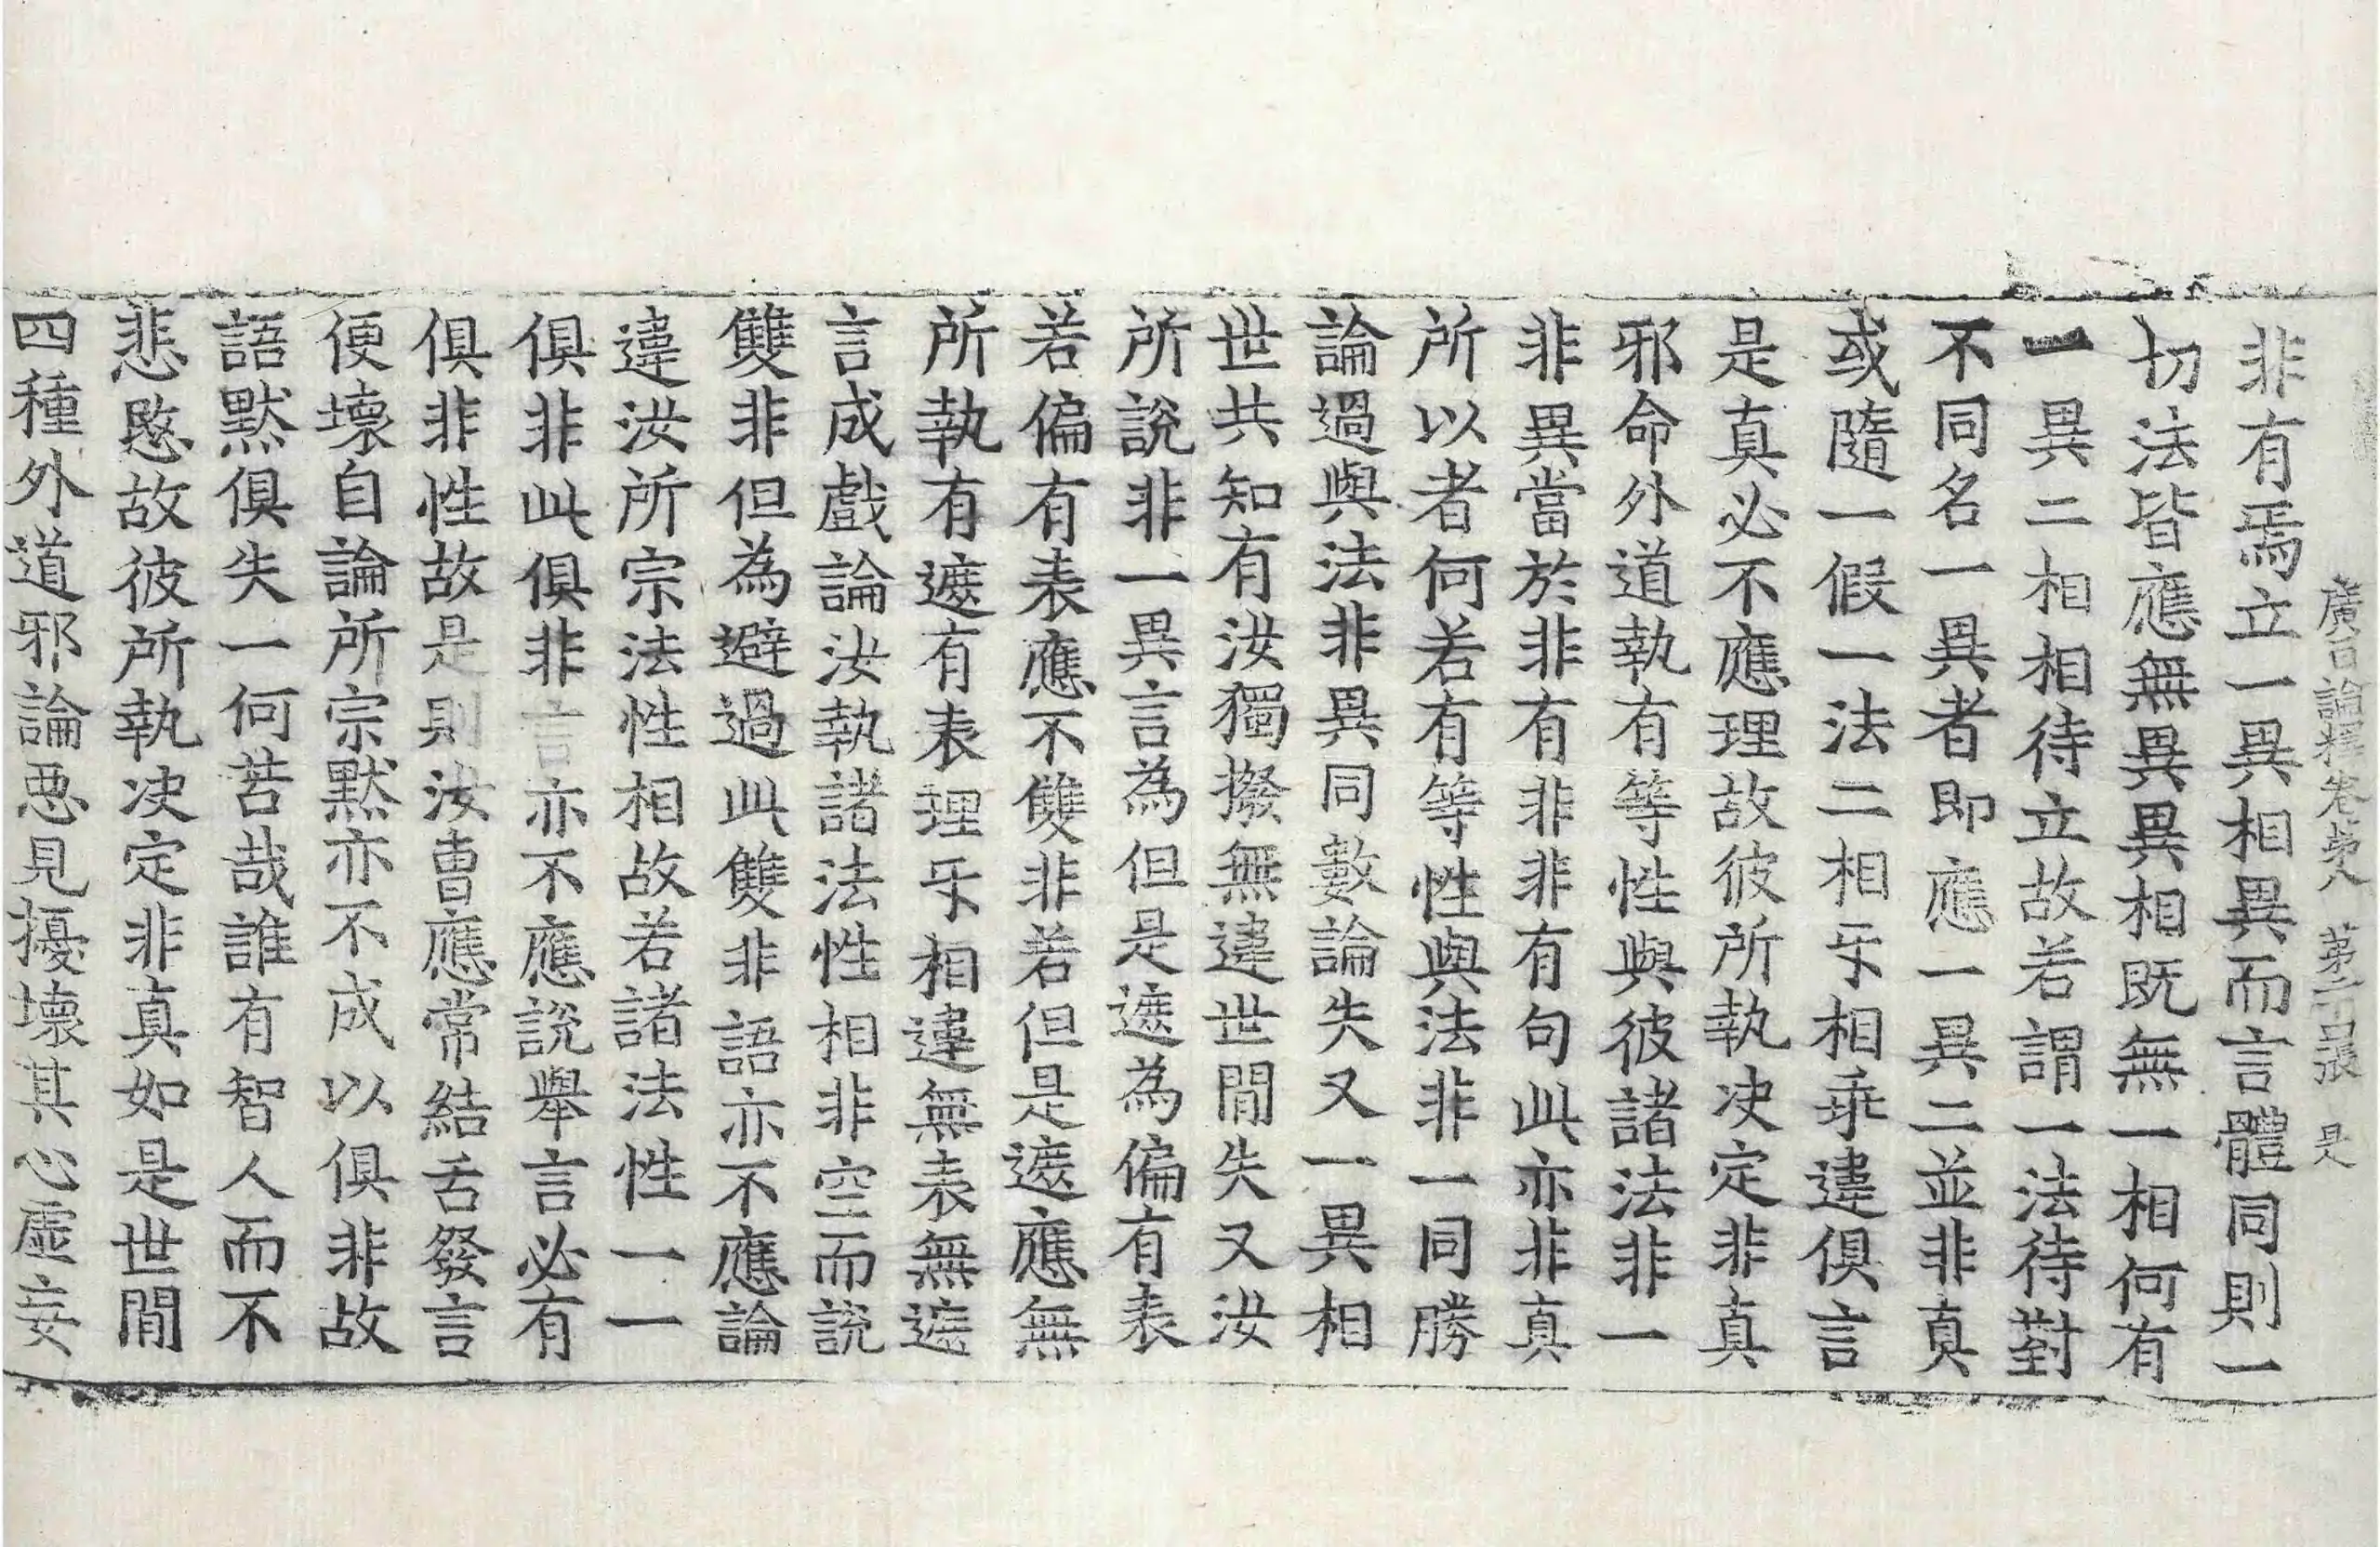 廣百論釋卷第八 第二十張 是
非有焉立一異相異而言體同則一
切法皆應無異異相既無一相何有
一異二相相待立故若謂一法待對
不同名一異者即應一異二並非真
或隨一假一法二相乐相乖違俱言
是真必不應理故彼所執决定非真
邪命外道執有等性與彼諸法非一
非異當於非有非非有句此亦非真
所以者何若有等性與法非一同勝
論過與法非異同數論失又一異相
世共知有汝獨撥無違世間失又汝
所說非一異言為但是遮為偏有表
若偏有表應不雙非若但是遮應無
所執有遮有表理乐相違無表無遮
言成戲論汝執諸法性相非空而說
雙非但為避過此雙非語亦不應論
違汝所宗法性相故若諸法性一一
俱非此俱非言亦不應說舉言必有
俱非性故是則汝曹應常結舌發言
便壞自論所宗默亦不成以俱非故
語默俱失一何苦哉誰有智人而不
悲愍故彼所執决定非真如是世間
四種外道邪論惡見擾壞其心虛妄